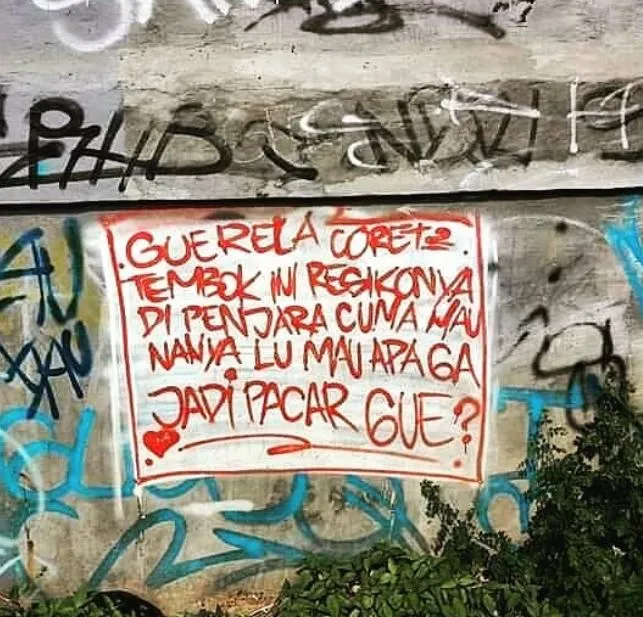 GUE RELA CORET2
TEMBOK INI RESIKONYA
DI PENJARA CUMA MAU
NANYA LU MAU APA GA
JADI PACAR GUE?